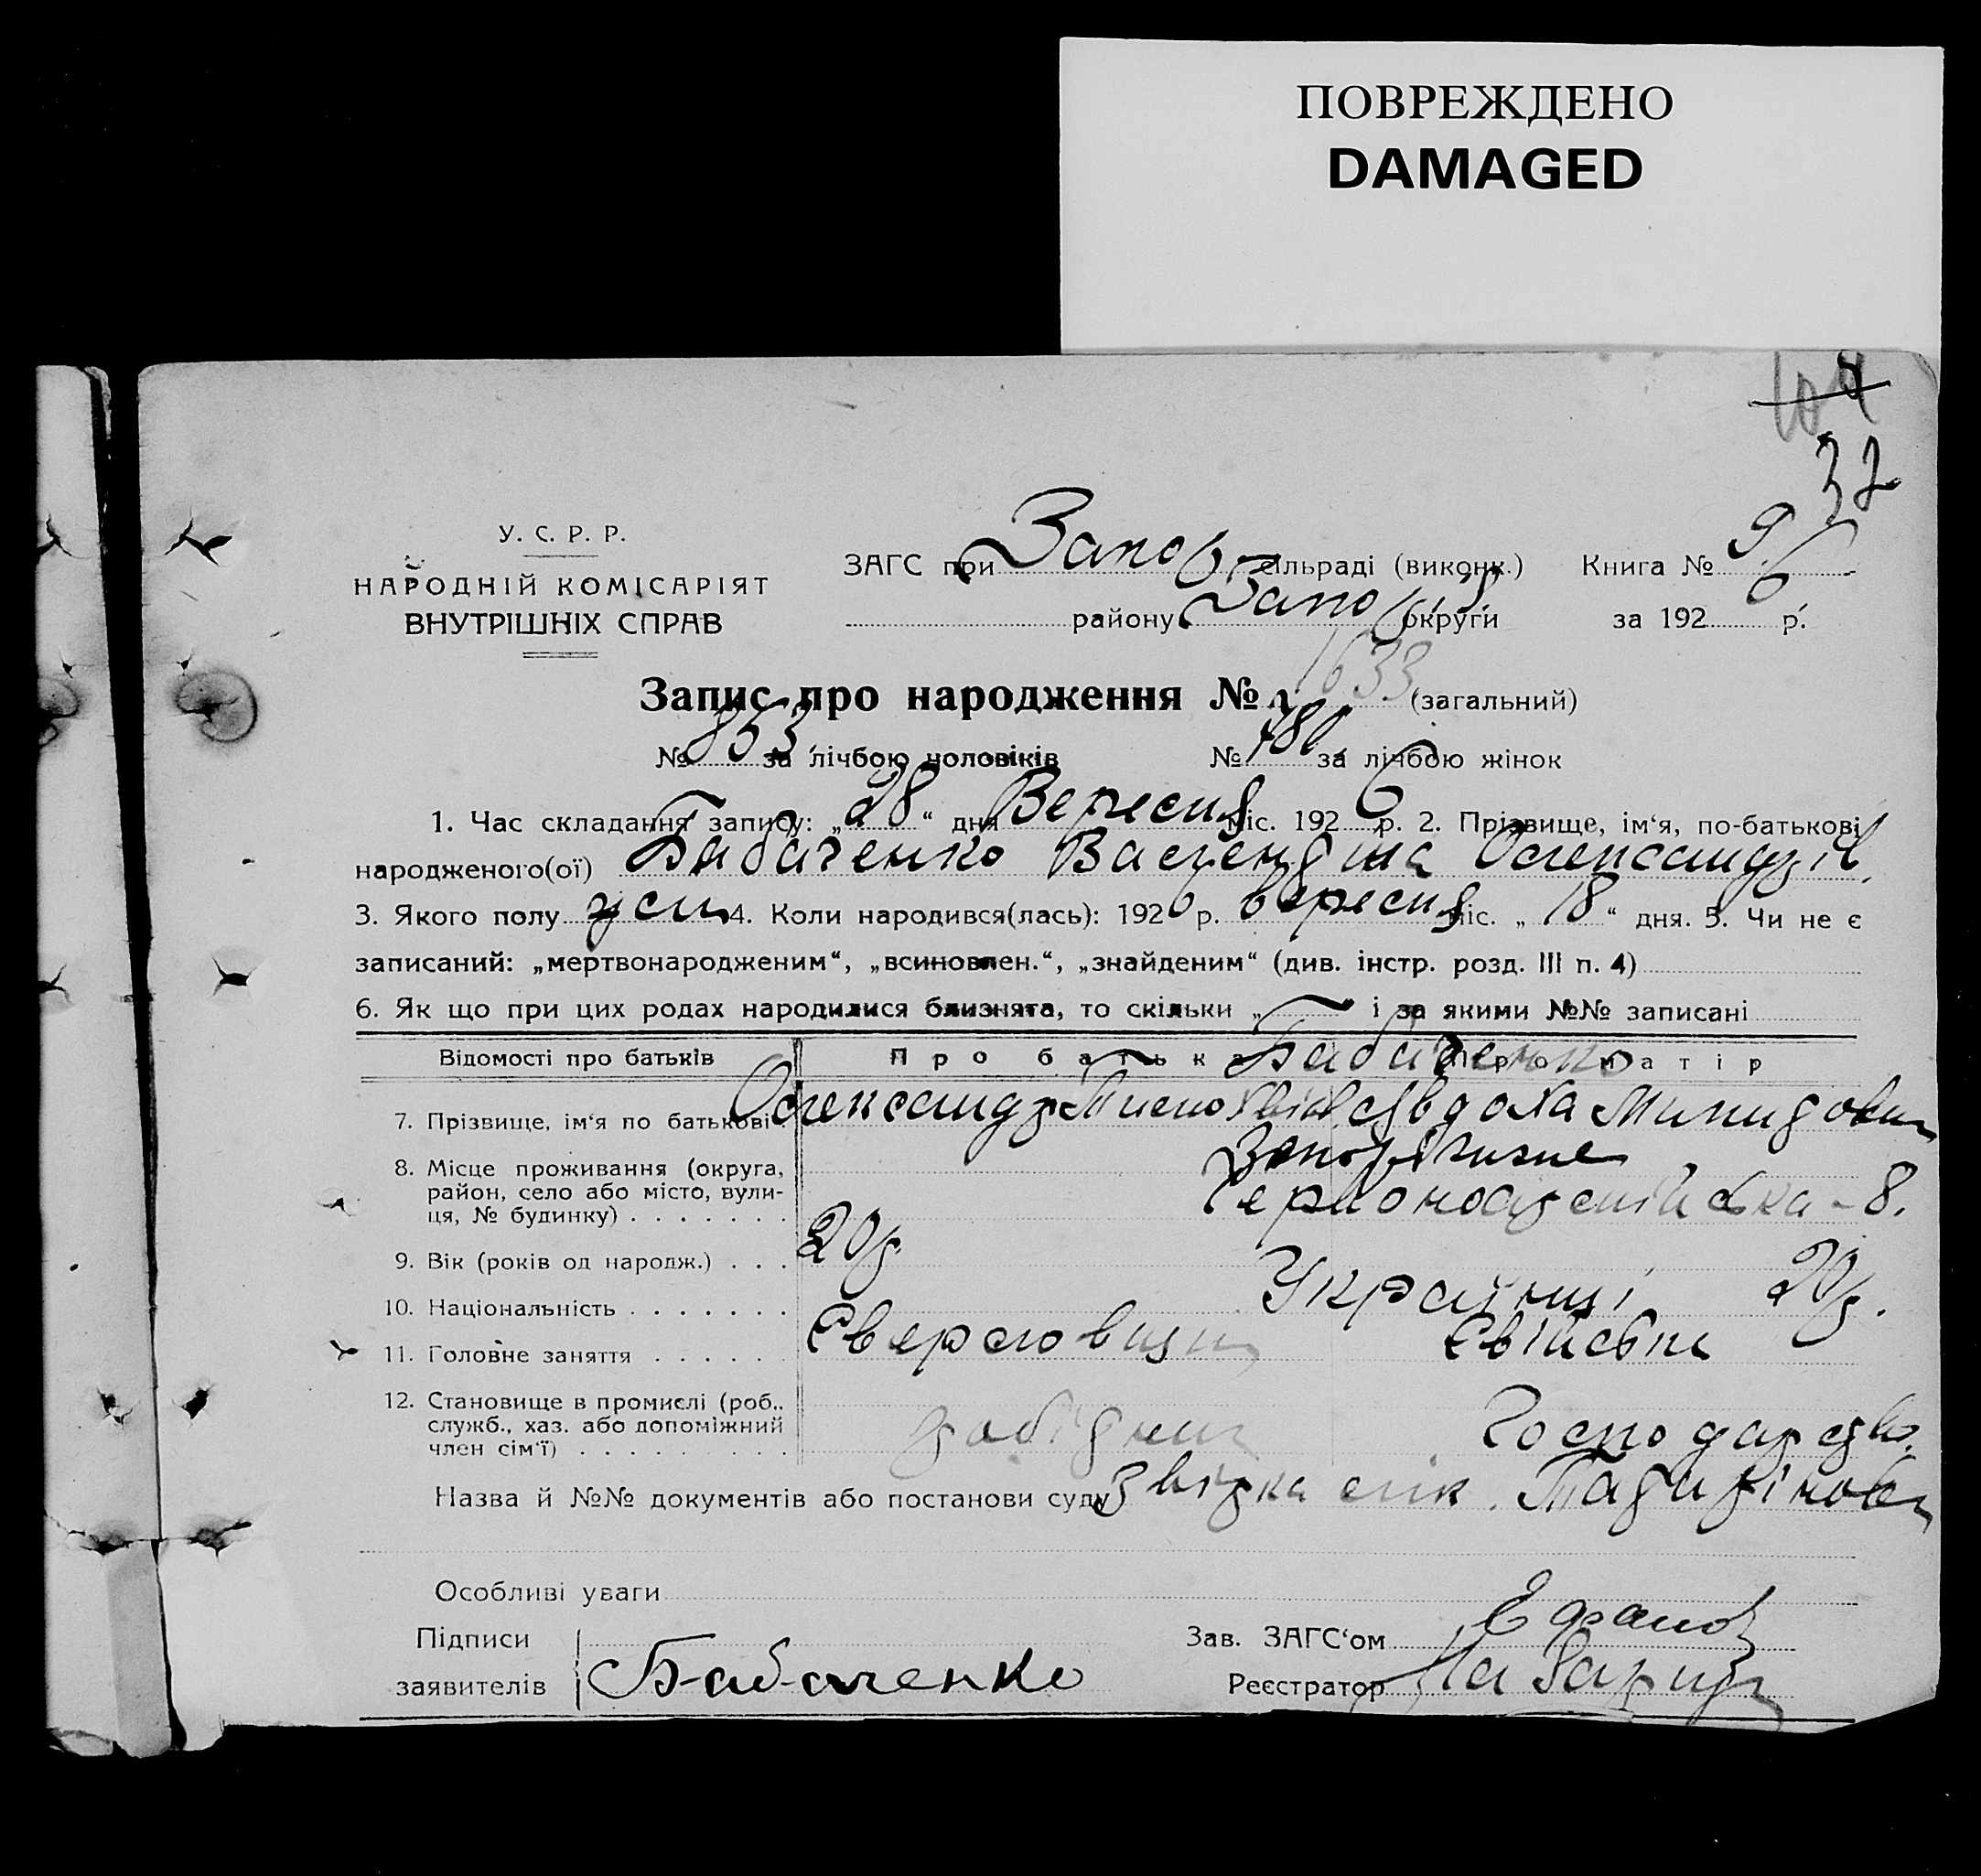 ПОВРЕЖДЕНО
DAMAGED
32
У. С. Р. Р.
НАРОДНІЙ КОМІСАРІЯТ
ВНУТРІШНІХ СПРАВ
ЗАГС при Запор. сільраді (виконк.) Книга № 9
району Запор. округи за 1926 р.
Запис про народження № 1633 (загальний)
№ 853 за лічбою чоловіків № 780 за лічбою жінок
1. Час складання запису: „28“ дня Вересня міс. 1926 р. 2. Прізвище, ім‘я, по-батькові
народженого(ої) Бабаченко Валентина Олександрів.
3. Якого полу жін 4. Коли народився(лась): 1926 р. вересня міс. „18“ дня. 5. Чи не є
записаний: „мертвонародженим“, „всиновлен.“, „знайденим“ (див. інстр. розд. III п. 4)
6. Як що при цих родах народилися близнята, то скільки „ і за якими №№ записані
Відомості про батьків Про батька Про матір
Бабаченко
7. Прізвище, ім‘я по батькові Олександр Явдоха
8. Місце проживання (округа, район, село або місто, вулиця, № будинку) Запоріжжє
– 8.
9. Вік (років од народж.) 20р 20р.
10. Національність Українці
11. Головне заняття
12. Становище в промислі (роб., служб., хаз. або допоміжний член сім‘ї) робітник Господарство
Назва й №№ документів або постанови суду Звідка лік.
Особливі уваги
Підписи заявителів Бабаченко
Зав. ЗАГС‘ом
Реєстратор